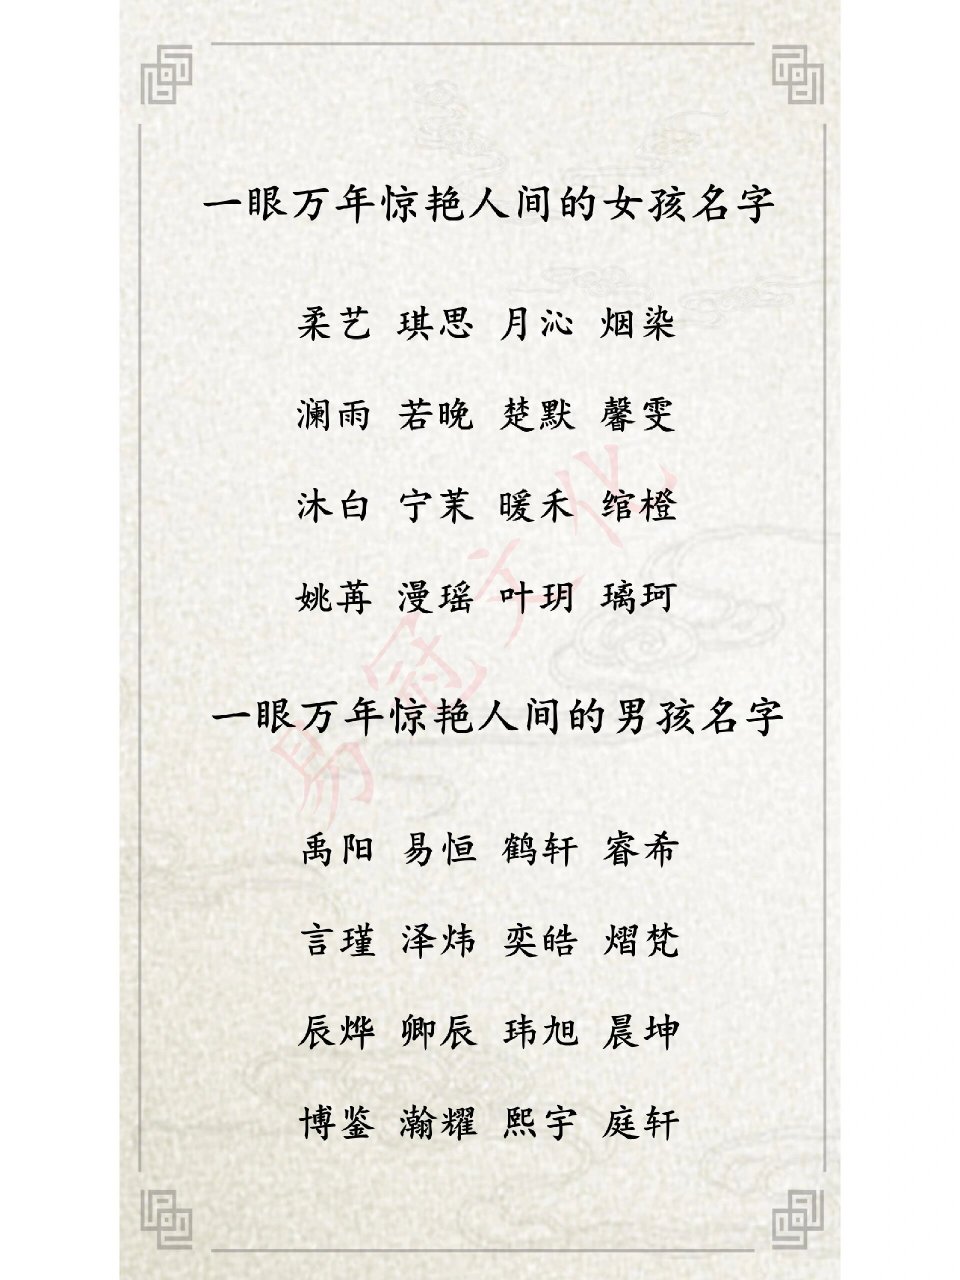 一眼万年惊艳人间的女孩名字
柔艺 琪思 月沁 烟染
澜雨 若晚 楚默 馨雯
沐白 宁茉 暖禾 绾橙
姚苒 漫瑶 叶玥 璃珂
一眼万年惊艳人间的男孩名字
禹阳 易恒 鹤轩 睿希
言瑾 泽炜 奕皓 熠梵
辰烨 卿辰 玮旭 晨坤
博鉴 瀚耀 熙宇 庭轩
易冠文化